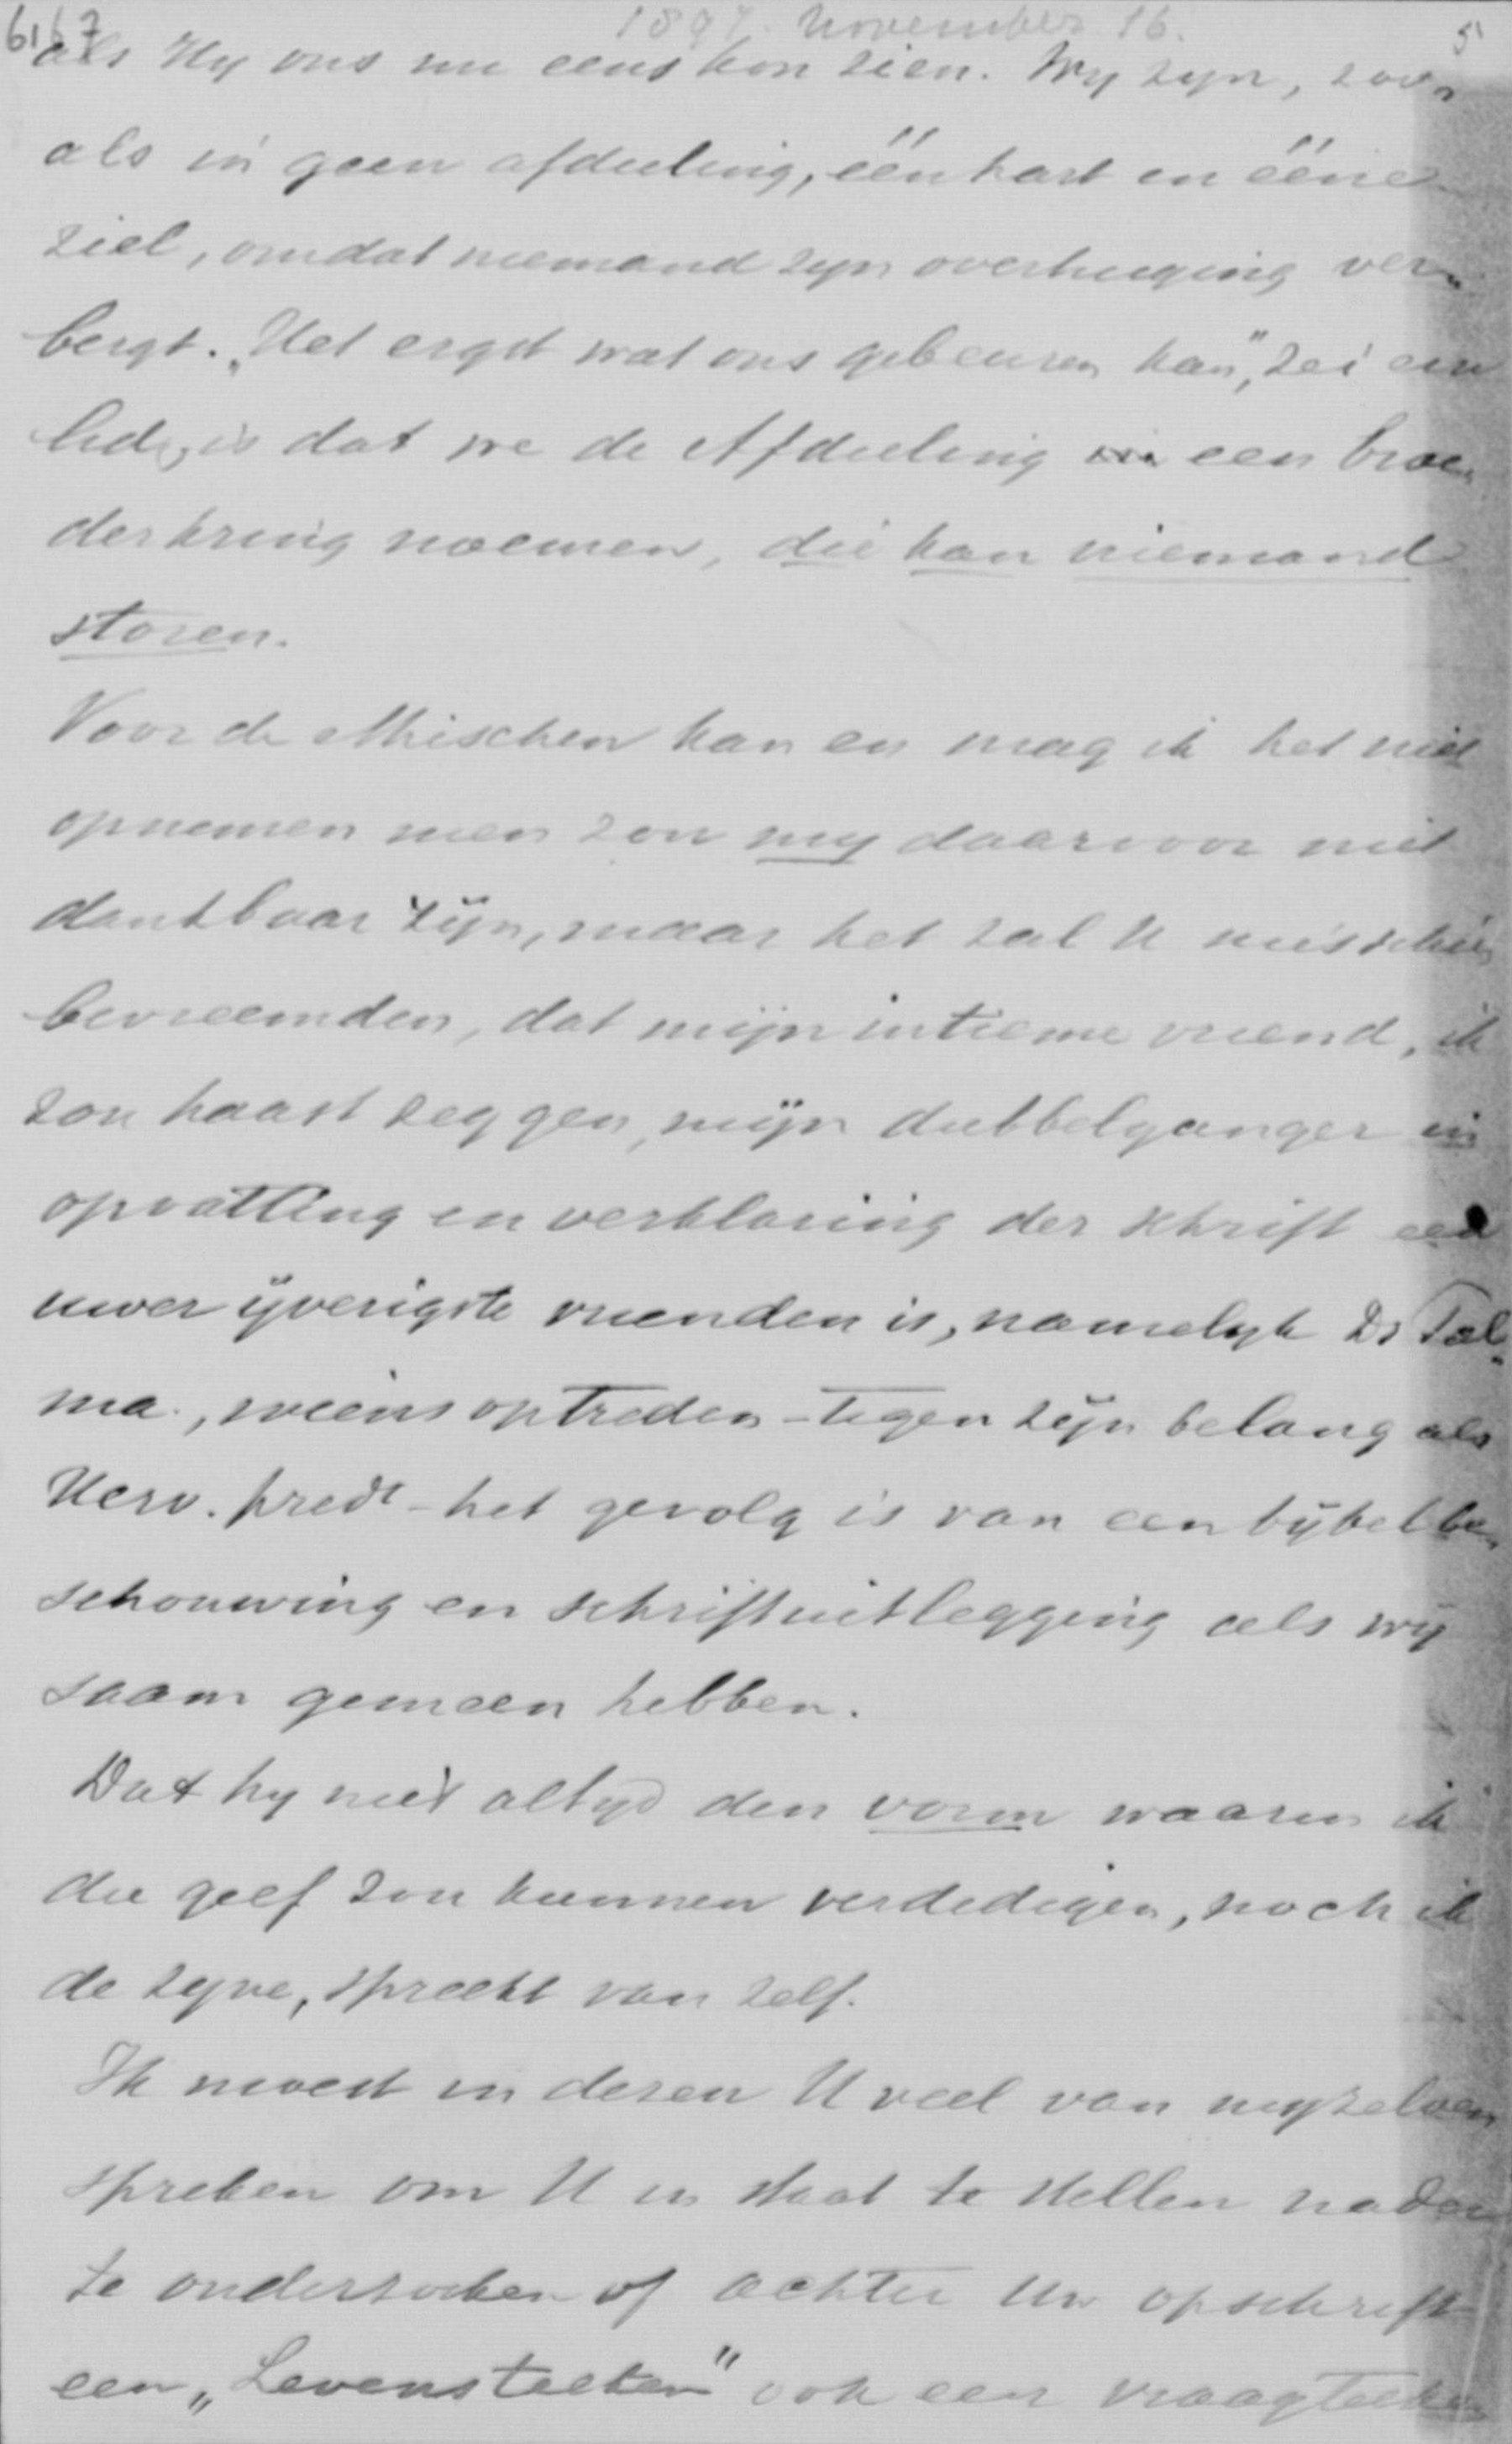 6167 1897. November 16. 5
als Hy ons nu eens kon zien. Wy zyn, zoo„
als in geen afdeeling, één hart en ééne
ziel, omdat niemand zyn overtuiging ver„
bergt. „Het ergst wat ons gebeuren kan", zei een
lid, is dat we de Afdeeling een broe„
derkring noemen, die kan niemand
storen.
Voor de ethischen kan en mag ik het niet
opnemen men zou my daarvoor niet
dankbaar zijn, maar het zal U misschien
bevreemden, dat mijn intieme vriend, ik
zou haast zeggen, mijn dubbelganger in
opvatting en verklaring der schrift een
uwer ijverigste vrienden is, namelyk Ds Tal„
ma., wiens optreden - tegen zijn belang als
Herv. predt - het gevolg is van een bijbelbe„
schouwing en schriftuitlegging als wij
saam gemeen hebben.
Dat hy niet altyd den vorm waarin ik
die geef zou kunnen verdedigen, noch ik
de zyne, spreekt van zelf.
Ik moest in dezen U veel van myzelven
spreken om U in staat te stellen nader
te onderzoeken of achter Uw opschrift
een „Levensteeken" ook een vraagteeken